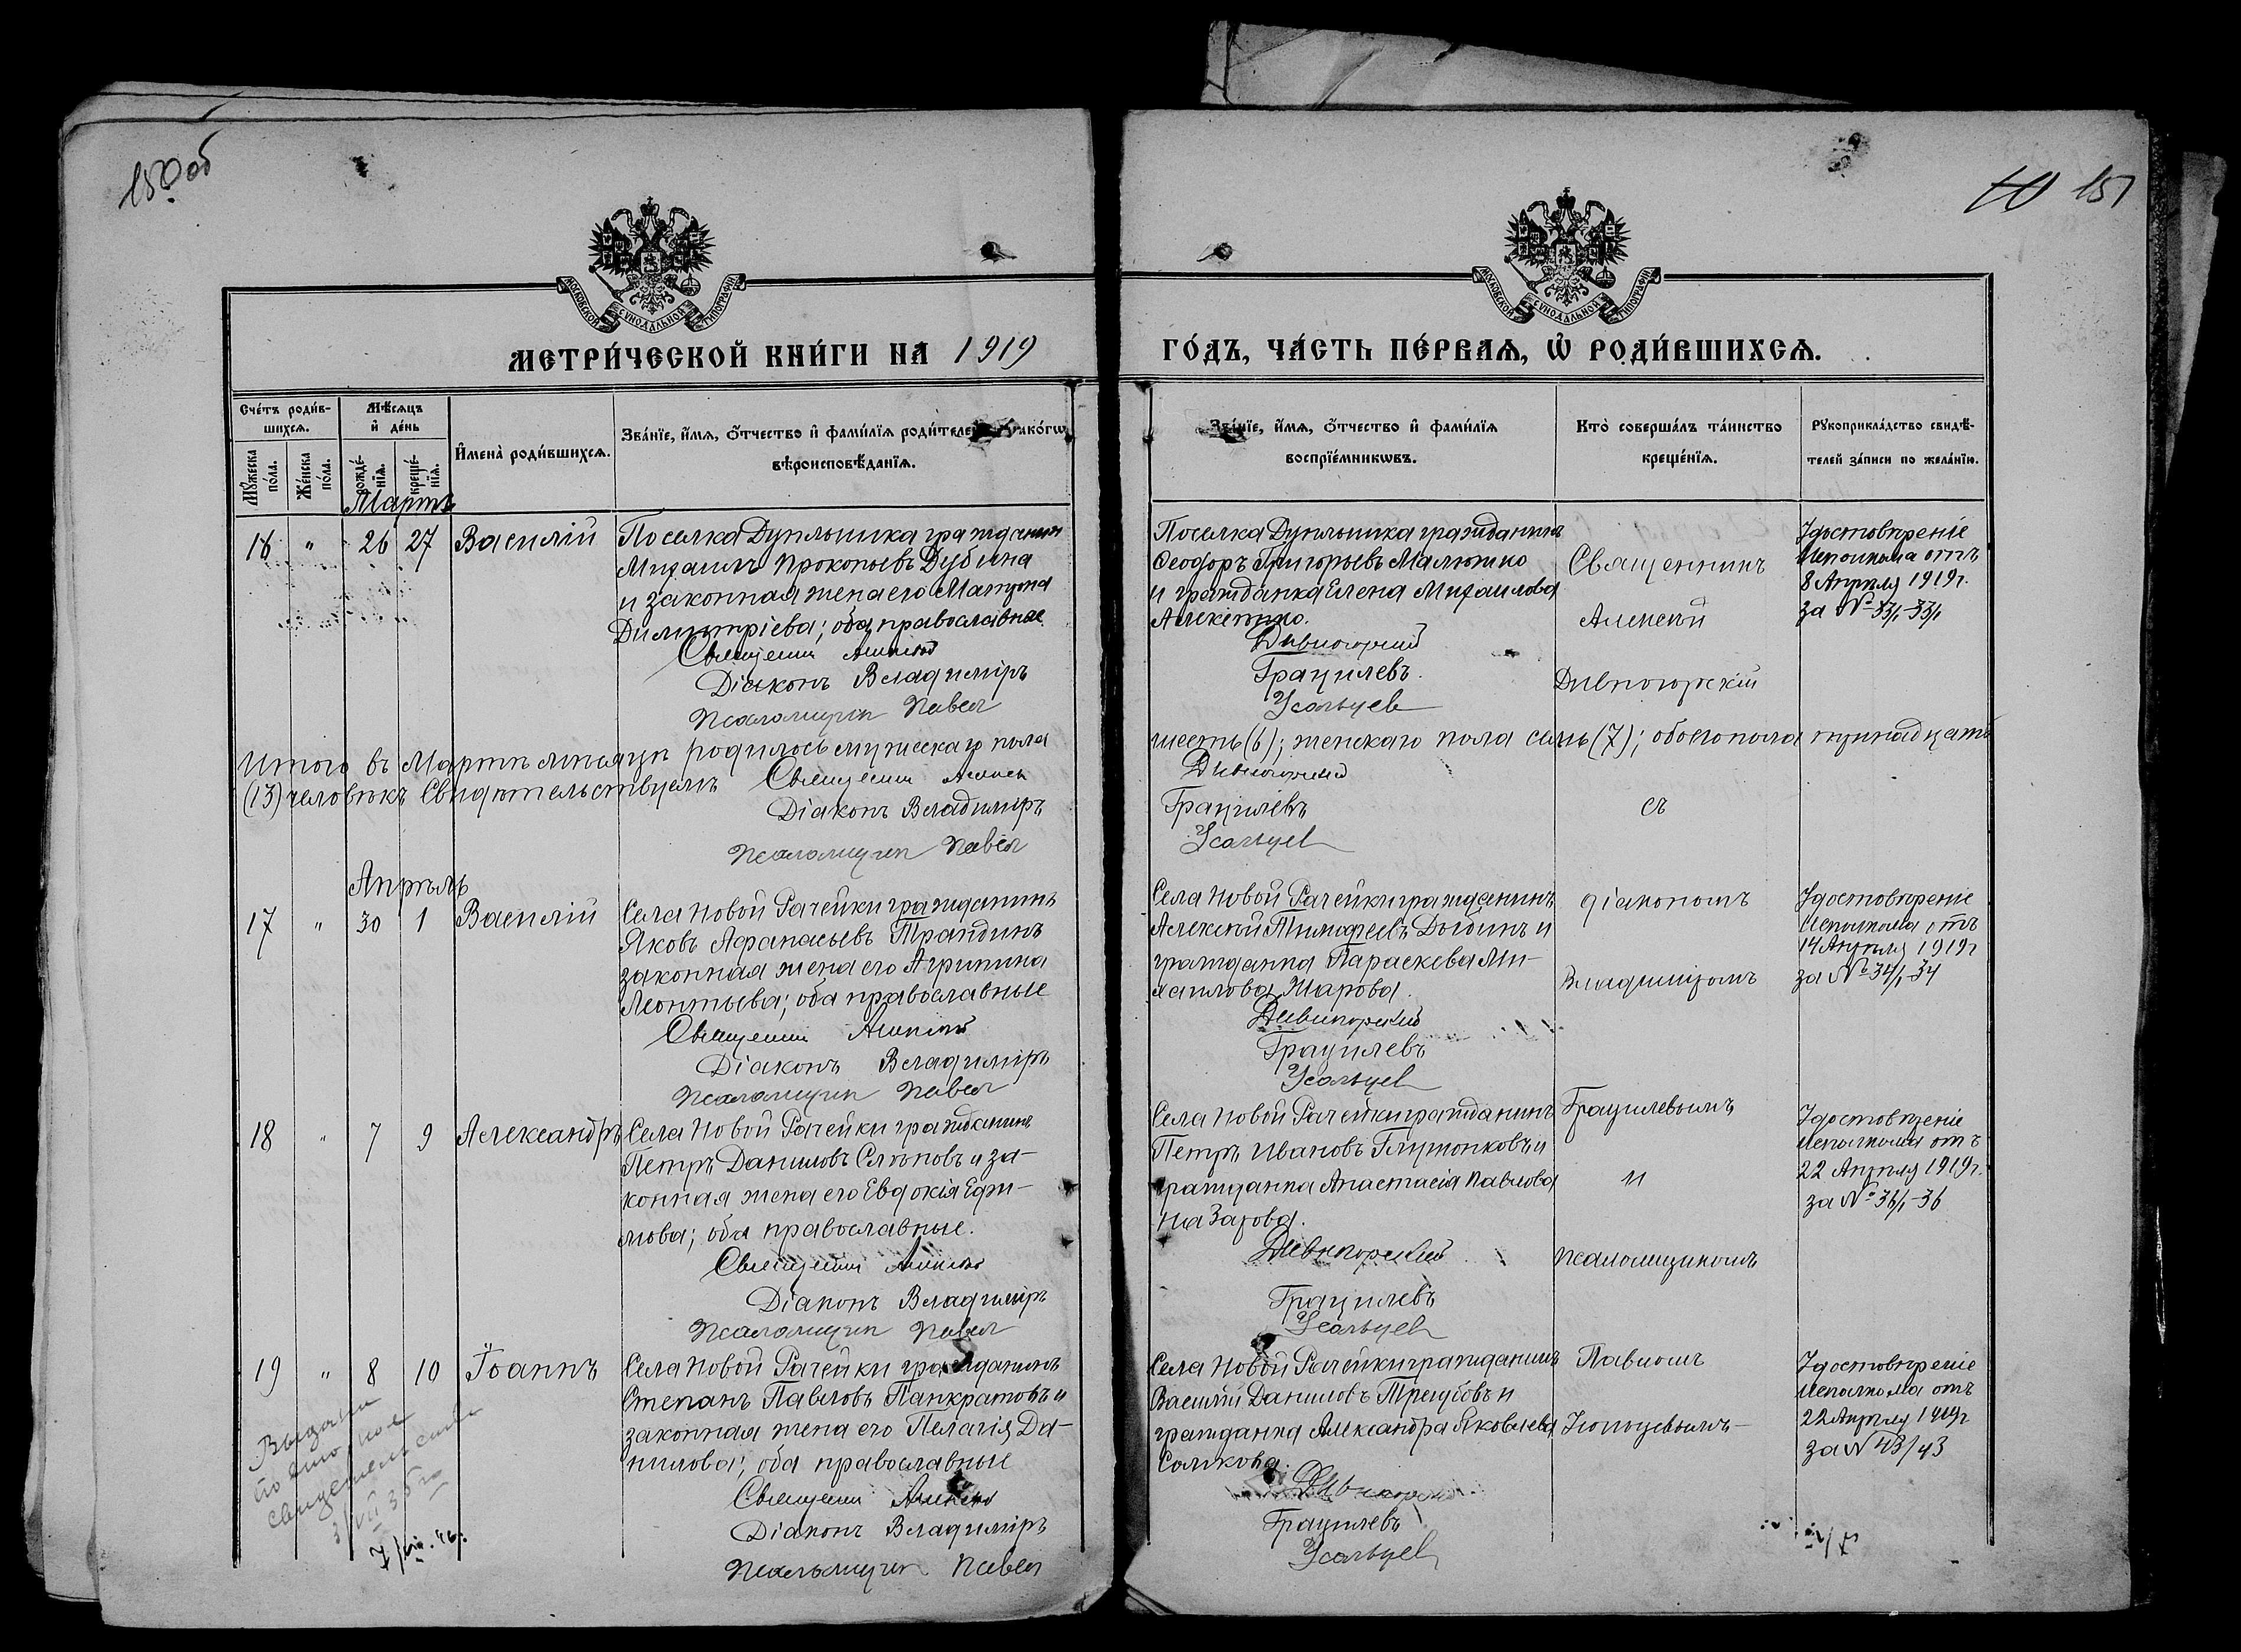 150 об
151
МОСКОВСКОЙ СѴНОДАЛЬНОЙ ТИПОГРАФІИ
МОСКОВСКОЙ СѴНОДАЛЬНОЙ ТИПОГРАФІИ
МЕТРИ́ЧЕСКОЙ КНИ́ГИ НА 1919
ГО́ДЪ, ЧА́СТЬ ПЕ́РВАѦ, Ѡ҆ РОДИ́ВШИХСѦ.
Сче́тъ роди́в-
шихсѧ.
Мѣ́сѧцъ
и҆ де́нь
И҆мена̀ роди́вшихсѧ.
Зва́нїе, и҆́мѧ, ѻ҆́тчество и҆ фамі́лїѧ роди́телей, како́гѡ
вѣроисповѣ́данїѧ.
Мꙋ́жеска
по́ла.
Же́нска
по́ла.
рожде́-
нїѧ.
креще́-
нїѧ.
Зва́нїе, и҆́мѧ, ѻ҆́тчество и҆ фамі́лїѧ
воспрїе́мникѡвъ.
Кто̀ соверша́лъ та́инство
креще́нїѧ.
Рꙋкоприкла́дство свидѣ́-
телей за́писи по жела́нїю.
Мартъ
16 " 26 27 Василій
Поселка Дупльшика гражданинъ
Михаилъ Прокопьевъ Дубина
и законная жена его Матрона
Димитріева; оба православные
Священ Алексій
Діаконъ Владиміръ
Псаломщик Павел
Поселка Дупльшика гражданинъ
Ѳеодоръ Григорьевъ Малютко
и гражданка Елена Михаилова
Дивногорскій
Грацилевъ.
Усольцев
Священникъ
Алексей
Дивногорскій
Удостовѣреніе
Исполкома отъ
8 Апрѣля 1919г.
за № 33/1-33/1
Итого въ Мартѣ мѣсяцѣ родилось мужескаго пола
шесть (6); женскаго пола семь (7); обоего пола тринадцать
(13) человѣкъ Свидѣтельствуемъ Священ Алексей
Діаконъ Владиміръ
Псаломщик Павел
Дивногорскій
Грацилевъ
Усольцев
съ
Апрѣль
17 " 30 1 Василій
Села Новой Рачейки гражданинъ
Яковъ Аѳанасьевъ Трандинъ
законная жена его Агрипина
Леонтьева; оба православные
Священ Алексій
Діаконъ Владиміръ
Псаломщик Павел
Села Новой Рачейки гражданинъ
Алексѣй Тимоѳеевъ Дыдинъ и
гражданка Параскева Ми-
хаилова Жарова.
Дивногорскій
Грацилевъ
Усольцев
діакономъ
Владиміромъ
Удостовѣреніе
Исполкома отъ
14 Апрѣля 1919г
за № 34/1-34
18 " 7 9 Александръ
Села Новой Рачейки гражданинъ
Петръ Даниловъ Слѣповъ и за-
конная жена его Евдокія Ефи-
мова; оба православные.
Священ Алексій
Діаконъ Владиміръ
Псаломщик Павел
Села Новой Рачейки гражданинъ
Петръ Ивановъ Глутонковъ и
гражданка Анастасія Павлова
Назарова.
Дивногорскій
Грацилевъ
Усольцев
Грацилевымъ
и
псаломщикомъ
Удостовѣреніе
Исполкома отъ
22 Апрѣля 1919г.
за № 36/1-36
19 " 8 10 Іоаннъ
Села Новой Рачейки гражданинъ
Степанъ Павловъ Панкратовъ и
законная жена его Пелагія Да-
нилова; оба православные
Священ Алексій
Діаконъ Владиміръ
Псаломщик Павел
Села Новой Рачейки гражданинъ
Василій Даниловъ Трегубовъ и
гражданка Александра Яковлева
Салкова.
Дивногорскій
Грацилевъ
Усольцев
Павломъ
Усольцевымъ
Удостовѣреніе
Исполкома отъ
22 Апрѣля 1919г
за № 43/43
Выдано
свидетельство